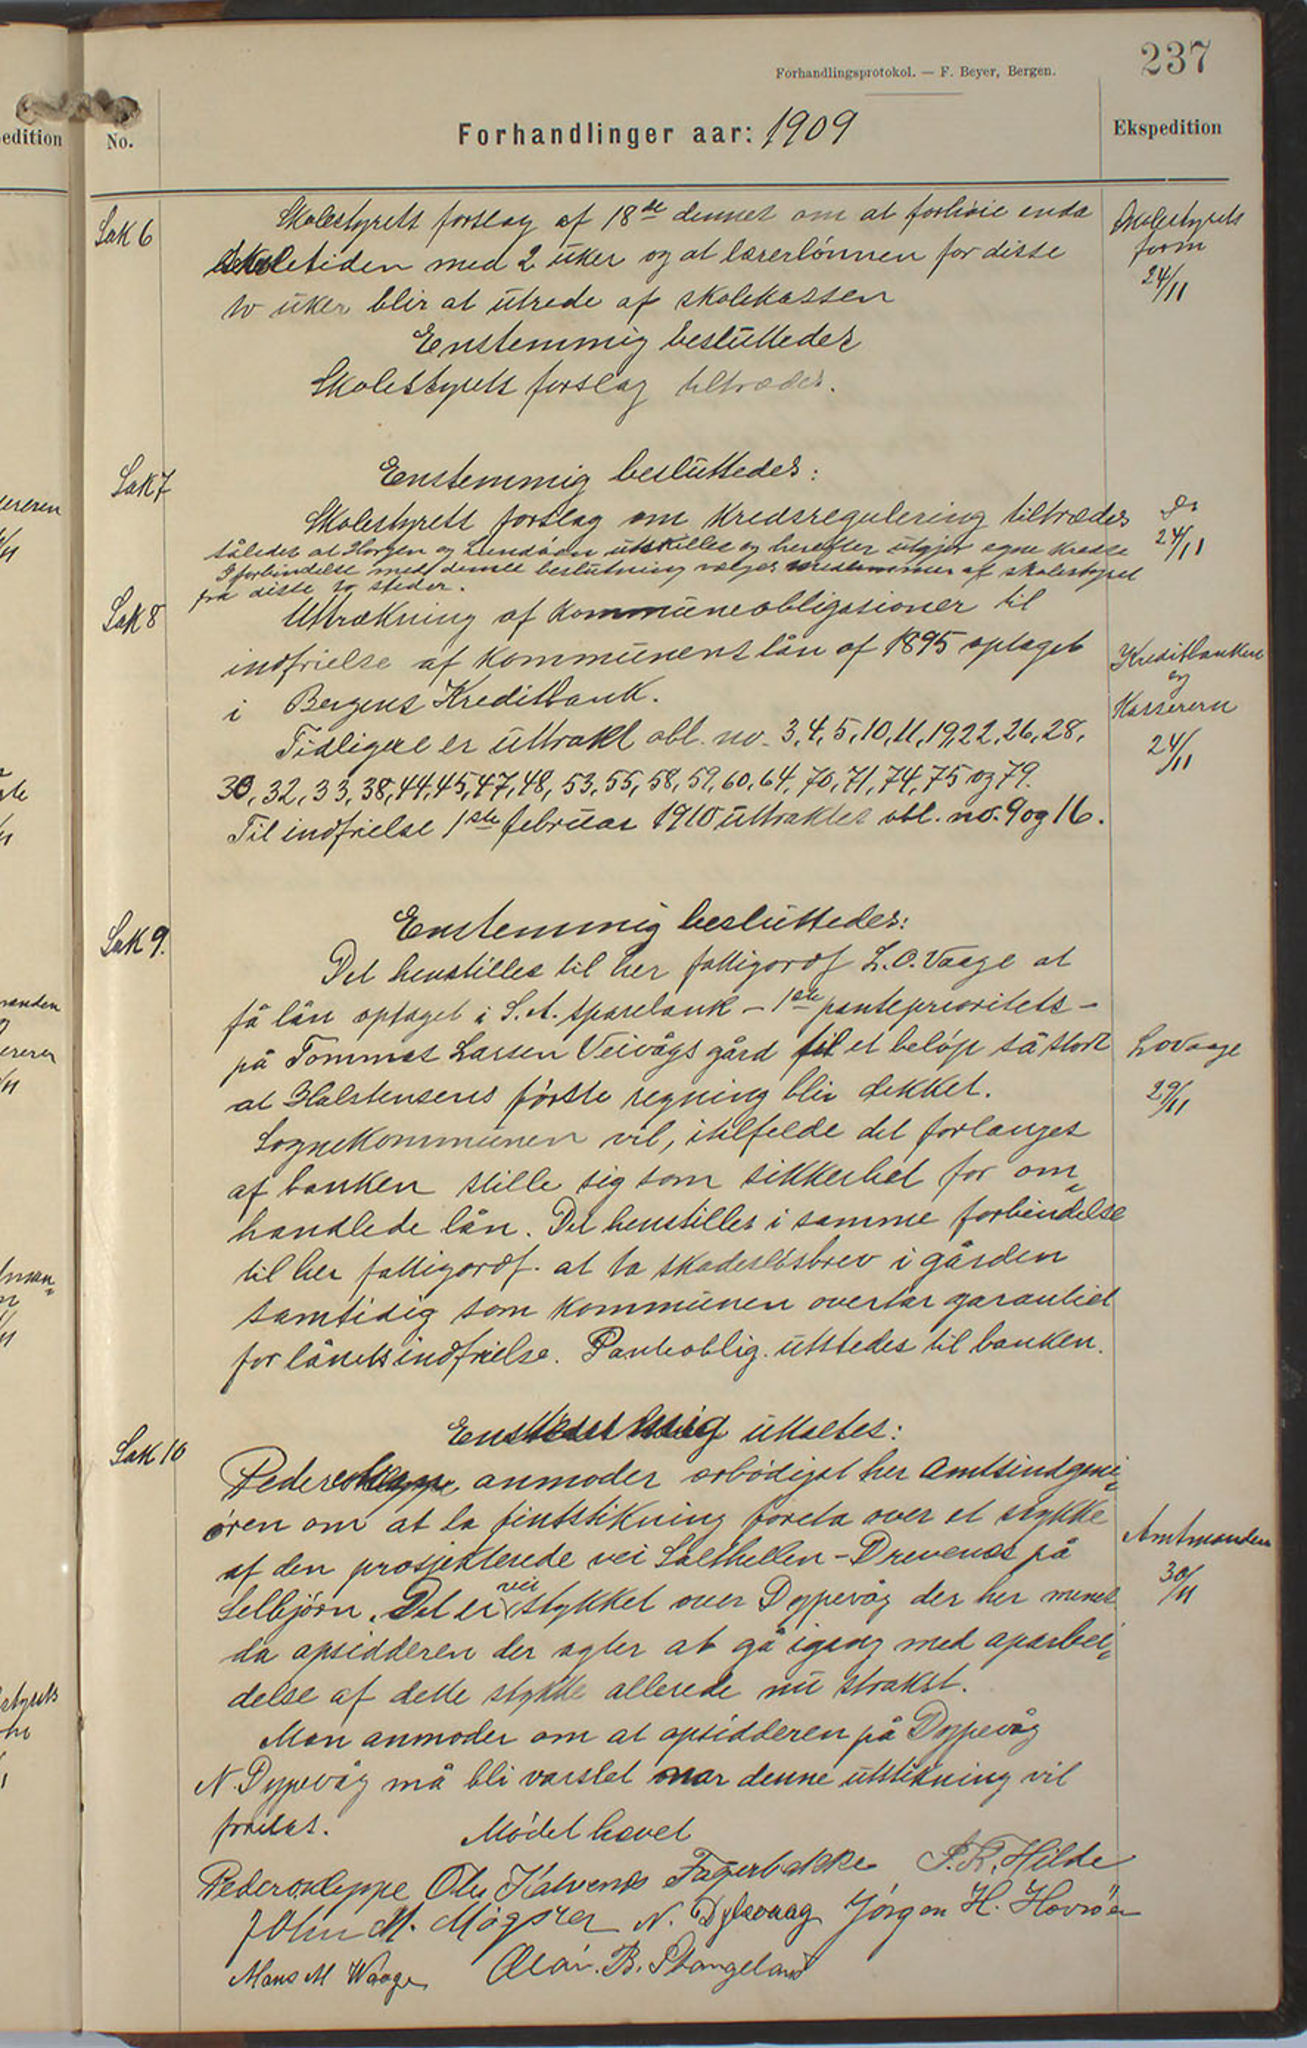 237
Forhandlingsprotokol. — F. Beyer, Bergen.
edition
No.
Forhandlinger aar: 1909
Ekspedition
Sak 6
Skolestyrets forslag af 18de dennes om at forhøie enda
skoletiden med 2 uker og at lærerlönnen for disse
to uker blir at utrede af skolekassen
Enstemmig besluttedes
Skolestyrets forslag tiltrædes.
Skolestyrets
form
24/11
Sak 7
Enstemmig besluttedes:
Skolestyrets forslag om kredsregulering tiltrædes
således at Horgen og Lundöen utskilles og herefter utgjør egne kredse
I forbindelse med denne beslutning vælges medlemmer af skolestyret
fra disse to steder.
Do
24/11
Sak 8
Uttrækning af kommuneobligasioner til
indfrielse af kommunens lån af 1895 optaget
i Bergens Kreditbank.
Tidligere er uttrakt obl. no. 3, 4, 5, 10, 11, 19, 22, 26, 28,
30, 32, 33, 38, 44, 45, 47, 48, 53, 55, 58, 59, 60, 64, 70, 71, 74, 75 og 79.
Til indfrielse 1ste februar 1910 uttraktes obl. no. 9 og 16.
Kreditbanken
og
Kassereren
24/11
Sak 9.
Enstemmig besluttedes:
Det henstilles til her fattigordf L. O. Vaage at
få lån optaget i S. A. sparebank – 1ste panteprioritets –
på Tommas Larsen Veivågs gård til et beløp så stort
at Halstensens første regning blir dekket.
Sognekommunen vil, itilfelde det forlanges
af banken stille sig som sikkerhet for om„
handlede lån. Det henstilles i samme forbindelse
til her fattigordf. at ta skadesløsbrev i gården
samtidig som kommunen overtar garantiet
for lånets indfrielse. Panteoblig. utstedes til banken.
LOVaage
29/11
Sak 10
Enstemmig uttaltes:
anmoder ærbödigst her Amtsindgeni„
øren om at la fintstikning foreta over et stykke
af den prosjekterede vei Salthellen – Drevenes på
Selbjörn. Det er vei stykket over Dyppevåg der her menes
da opsidderen der agter at gå igang med oparbei„
delse af dette stykke allerede nu strakst.
Man anmoder om at opsidderen på Dyppevåg
N. Dyppevåg må bli varslet når denne utstikning vil
foretas.
Mödet hævet
Amtmanden
30/11
Peder Kleppe Ole Kalvenes Fagerbakke P. K. Hilde
John M. Møgster N. Dybevaag Jörgen H. Hovröen
Mons M Waage Olai. B. Stangeland